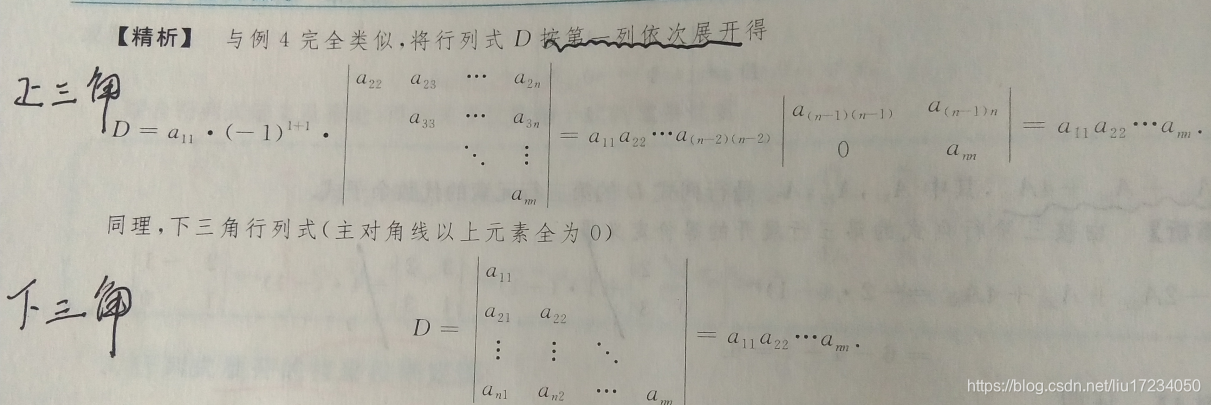 【精析】 与例 4 完全类似,将行列式 D 按第一列依次展开得
上三角
D = a₁₁ · (−1)¹⁺¹ · | a₂₂ a₂₃ ⋯ a₂ₙ
a₃₃ ⋯ a₃ₙ
⋱ ⋮
aₙₙ | = a₁₁a₂₂⋯a₍ₙ₋₂₎₍ₙ₋₂₎ | a₍ₙ₋₁₎₍ₙ₋₁₎ a₍ₙ₋₁₎ₙ
0 aₙₙ | = a₁₁a₂₂⋯aₙₙ.
同理,下三角行列式(主对角线以上元素全为 0)
下三角
D = | a₁₁
a₂₁ a₂₂
⋮ ⋮ ⋱
aₙ₁ aₙ₂ ⋯ aₙₙ | = a₁₁a₂₂⋯aₙₙ.
https://blog.csdn.net/liu17234050